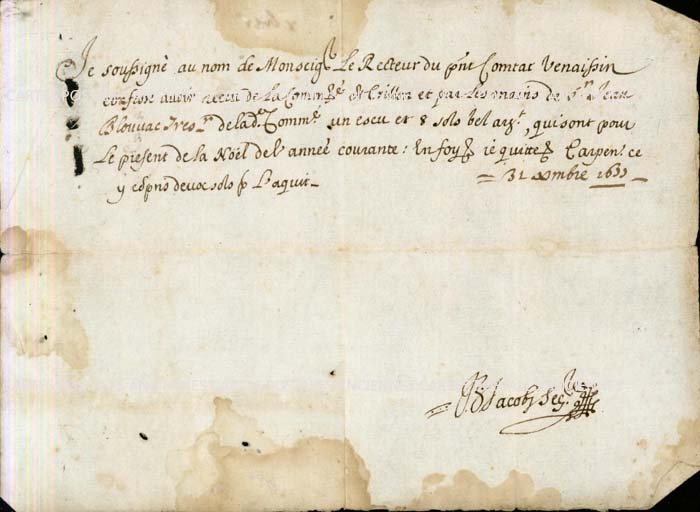 Je soussigné au nom de Monseigr Le Recteur du pnt Comtat Venaissin
confesse avoir receu de la Commté de Crillon et par les mains de Sr Jean
Blouvac Tresr de lad. Commté un escu et 8 sols bel argt, qui sont pour
Le present de la Noël de l'année courante: En foy ie quitte Carpens ce
31 xbmbre 1655
y compris deux sols p L'aquit
Jacobi Segre